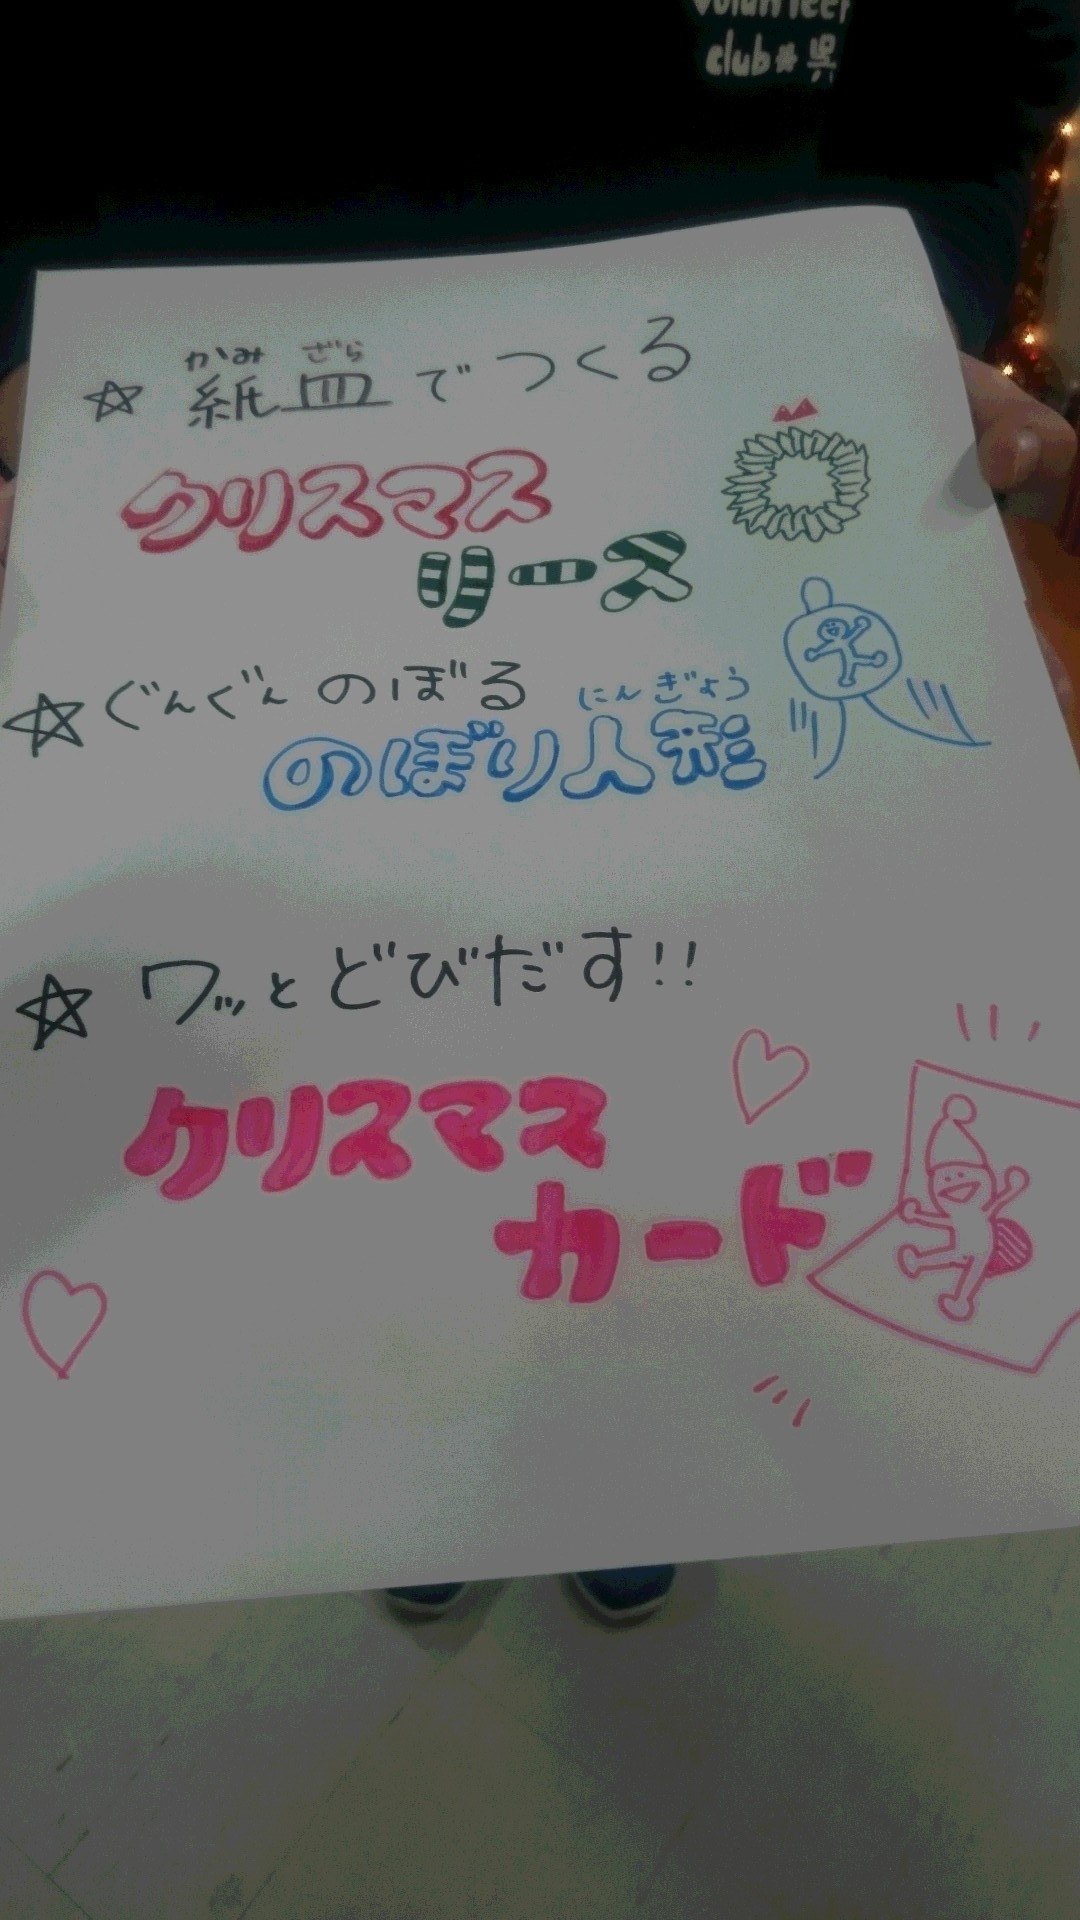 volunteer
club#呉
かみ ざら
☆ 紙皿でつくる
クリスマス
リース
☆ ぐんぐんのぼる
にんぎょう
のぼり人形
☆ ワッとどびだす!!
クリスマス
カード